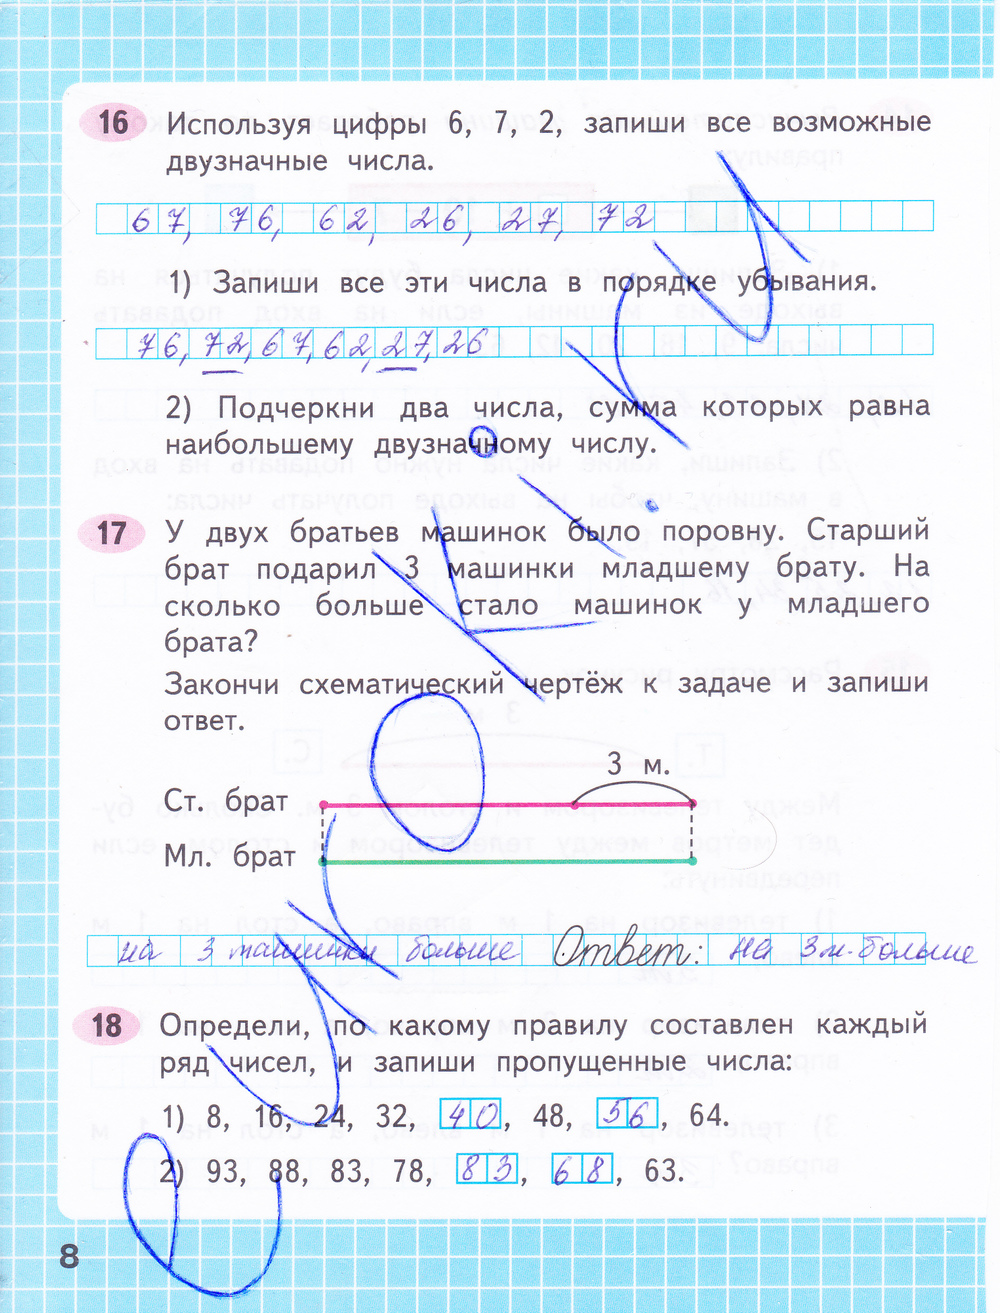 16 Используя цифры 6, 7, 2, запиши все возможные
двузначные числа.
67, 76, 62, 26, 27, 72
1) Запиши все эти числа в порядке убывания.
76, 72, 67, 62, 27, 26
2) Подчеркни два числа, сумма которых равна
наибольшему двузначному числу.
17 У двух братьев машинок было поровну. Старший
брат подарил 3 машинки младшему брату. На
сколько больше стало машинок у младшего
брата?
Закончи схематический чертёж к задаче и запиши
ответ.
3 м.
Ст. брат
Мл. брат
на 3 машинки больше Ответ: на 3 м. больше
18 Определи, по какому правилу составлен каждый
ряд чисел, и запиши пропущенные числа:
1) 8, 16, 24, 32, 40, 48, 56, 64.
2) 93, 88, 83, 78, 83, 68, 63.
8